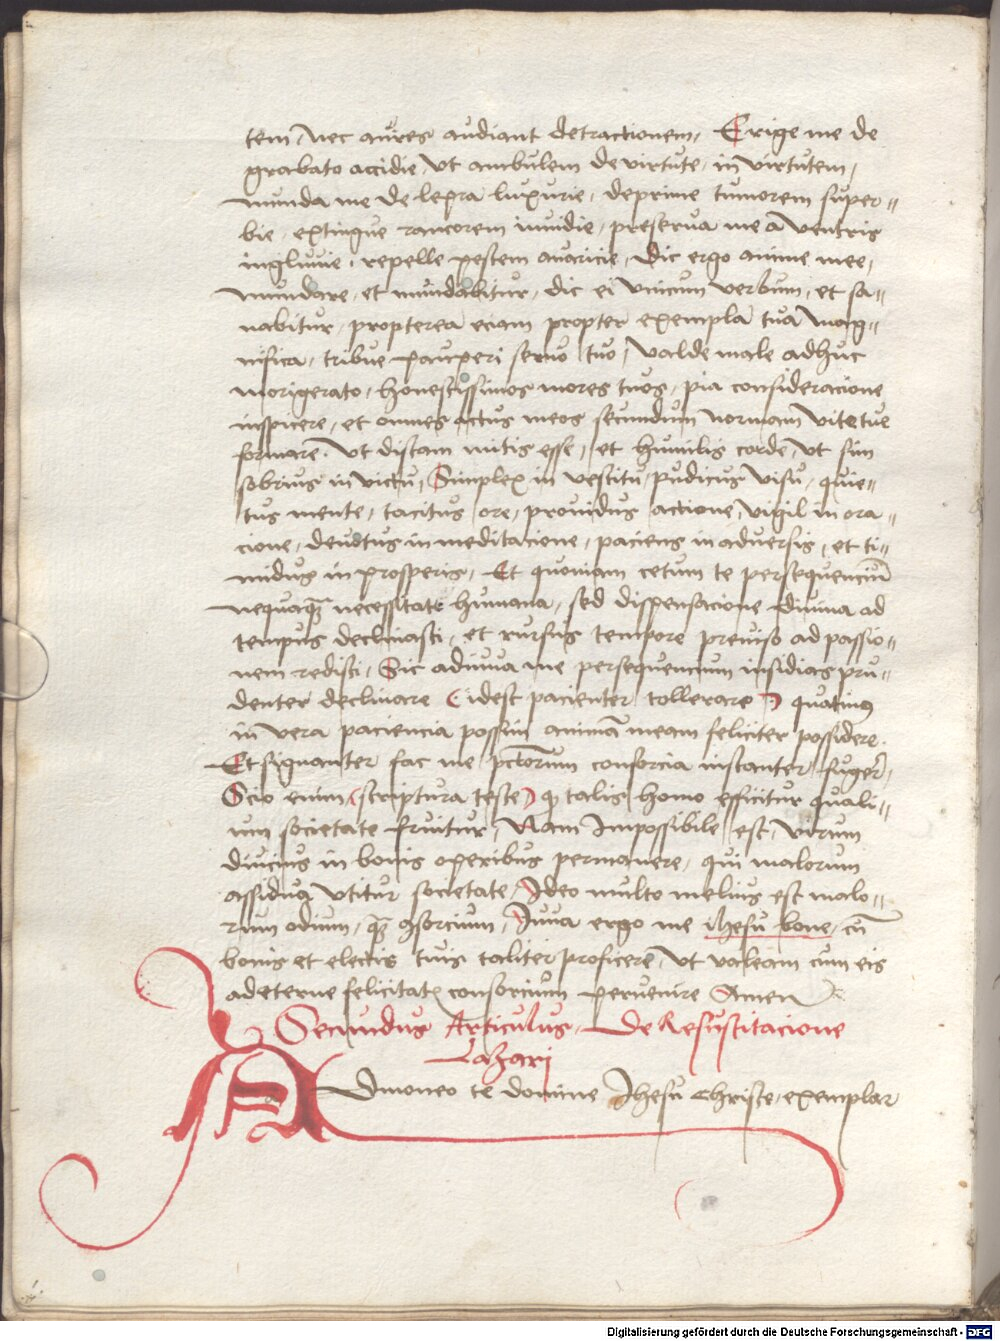 tem, Nec aures audiant detractionem, Erige me de
grabato accidie, Vt ambulem de virtute, in virtutem,
munda me de lepra luxurie, deprime tumorem super=
bie, extingue rancorem inuidie, preserua me a ventris
ingluuie, repelle pestem auaricie, Dic ergo anime mee,
mundare, et mundabitur, dic ei vnicum verbum, et sa=
nabitur, propterea eciam propter exempla tua mag=
nifica, tribue pauperi seruo tuo, valde male adhuc
morigerato, honestissimos mores tuos, pia consideracione
inspicere, et omnes actus meos secundum normam vite tue
formare. Vt discam mitis esse, et humilis corde, vt sim
sobrius in victu, Simplex in vestitu, pudicus visu, quie=
tus mente, tacitus ore, prouidus actione, vigil in ora=
cione, deuotus in meditacione, paciens in aduersis, et ti=
midus in prosperis, Et quoniam cetum te persequenciū
nequaqȝ necessitate humana, sed dispensacione diuina ad
tempus declinasti, et rursus tempore preuiso ad passio=
nem redisti, Sic adiuua me persequencium insidias pru=
denter declinare (idest pacienter tollerare) quatinus
in vera paciencia possim animā meam feliciter possidere.
Et signanter fac me pctorum consorcia instanter fuger̄,
Scio enim (scriptura teste) qȝ talis homo efficitur quali=
um societate fruitur, Nam Impossibile est, virum
diucius in bonis operibus permanere, qui malorum
assidua vtitur societate, Ideo multo melius est malo=
rum odium, qȝ ꝯsorcium, Iuua ergo me ihesu bone, cū
bonis et electis tuis taliter proficere, vt valeam cum eis
ad eterne felicitatꝭ consorcium peruenire Amen
Secundus Articulus, De Resustitacione
Lazari
Admoneo te domine Ihesu Christe, exemplar
Digitalisierung gefördert durch die Deutsche Forschungsgemeinschaft - DFG